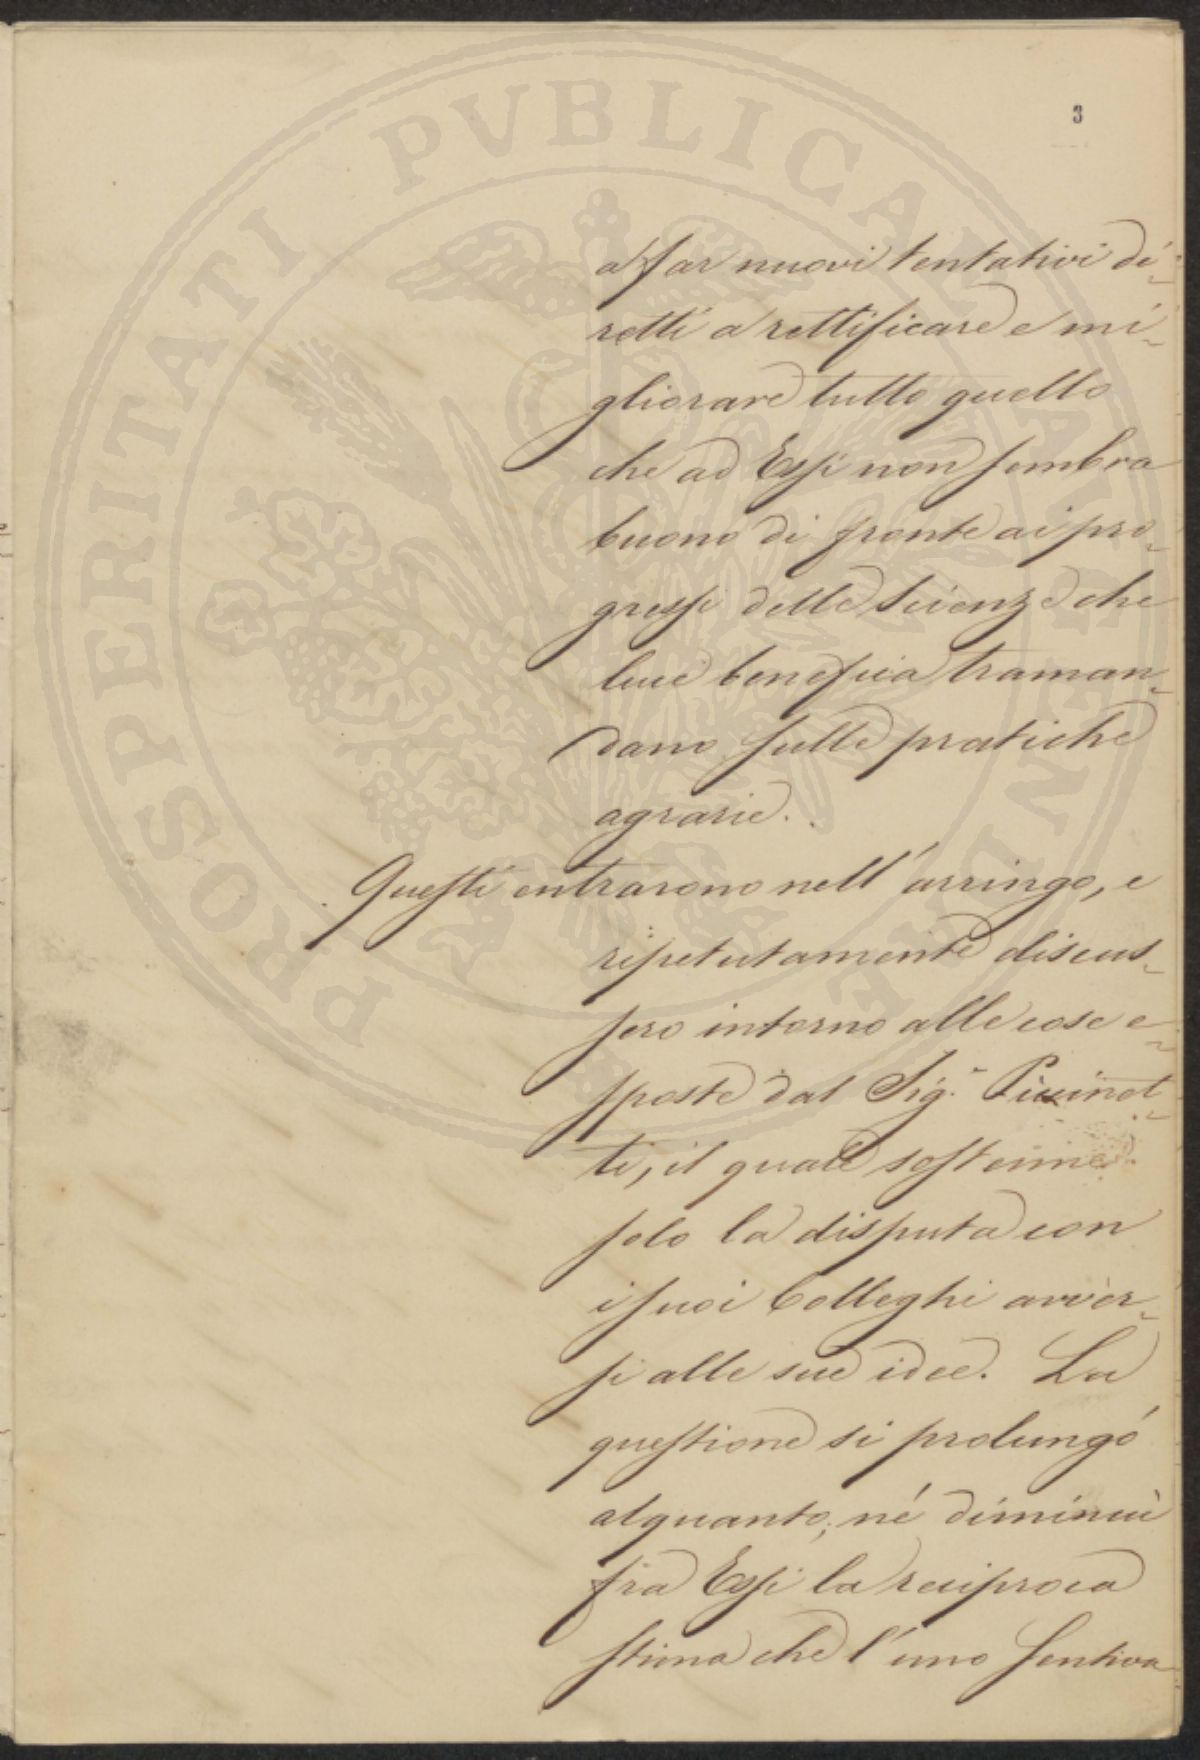 3
PROSPERITATI PVBLICAE AVGENDAE
a far nuovi tentativi di-
retti a rettificare e mi-
gliorare tutto quello
che ad Essi non sembra
buono di fronte ai pro-
gressi delle Scienze che
luce benefica traman-
dano sulle pratiche
agrarie.
Questi entrarono nell'arringo, e
ripetutamente discus-
sero intorno alle cose e-
sposte dal Sig.r
ti, il quale sostenne
solo la disputa con
i suoi Colleghi avver-
si alle sue idee. La
questione si prolungó
alquanto; né diminuì
fra Essi la reciproca
stima che l'uno sentiva